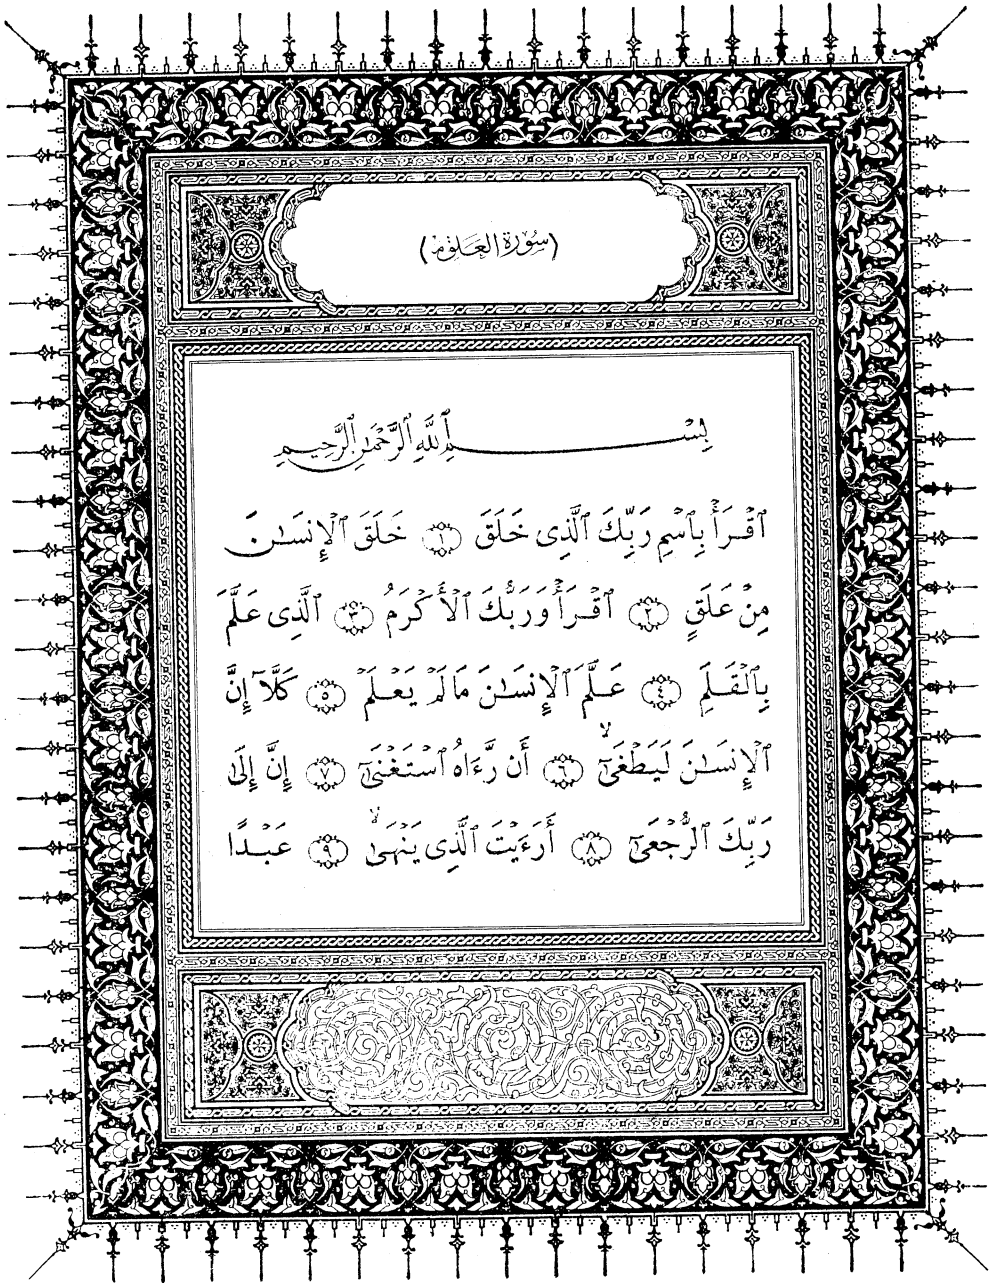 (سُورَةُ العَلَقِ)
بِسْمِ ٱللَّهِ ٱلرَّحْمَٰنِ ٱلرَّحِيمِ
ٱقْرَأْ بِٱسْمِ رَبِّكَ ٱلَّذِى خَلَقَ ١ خَلَقَ ٱلْإِنسَٰنَ
مِنْ عَلَقٍ ٢ ٱقْرَأْ وَرَبُّكَ ٱلْأَكْرَمُ ٣ ٱلَّذِى عَلَّمَ
بِٱلْقَلَمِ ٤ عَلَّمَ ٱلْإِنسَٰنَ مَا لَمْ يَعْلَمْ ٥ كَلَّآ إِنَّ
ٱلْإِنسَٰنَ لَيَطْغَىٰٓ ۙ ٦ أَن رَّءَاهُ ٱسْتَغْنَىٰٓ ٧ إِنَّ إِلَىٰ
رَبِّكَ ٱلرُّجْعَىٰٓ ٨ أَرَءَيْتَ ٱلَّذِى يَنْهَىٰ ۙ ٩ عَبْدًا